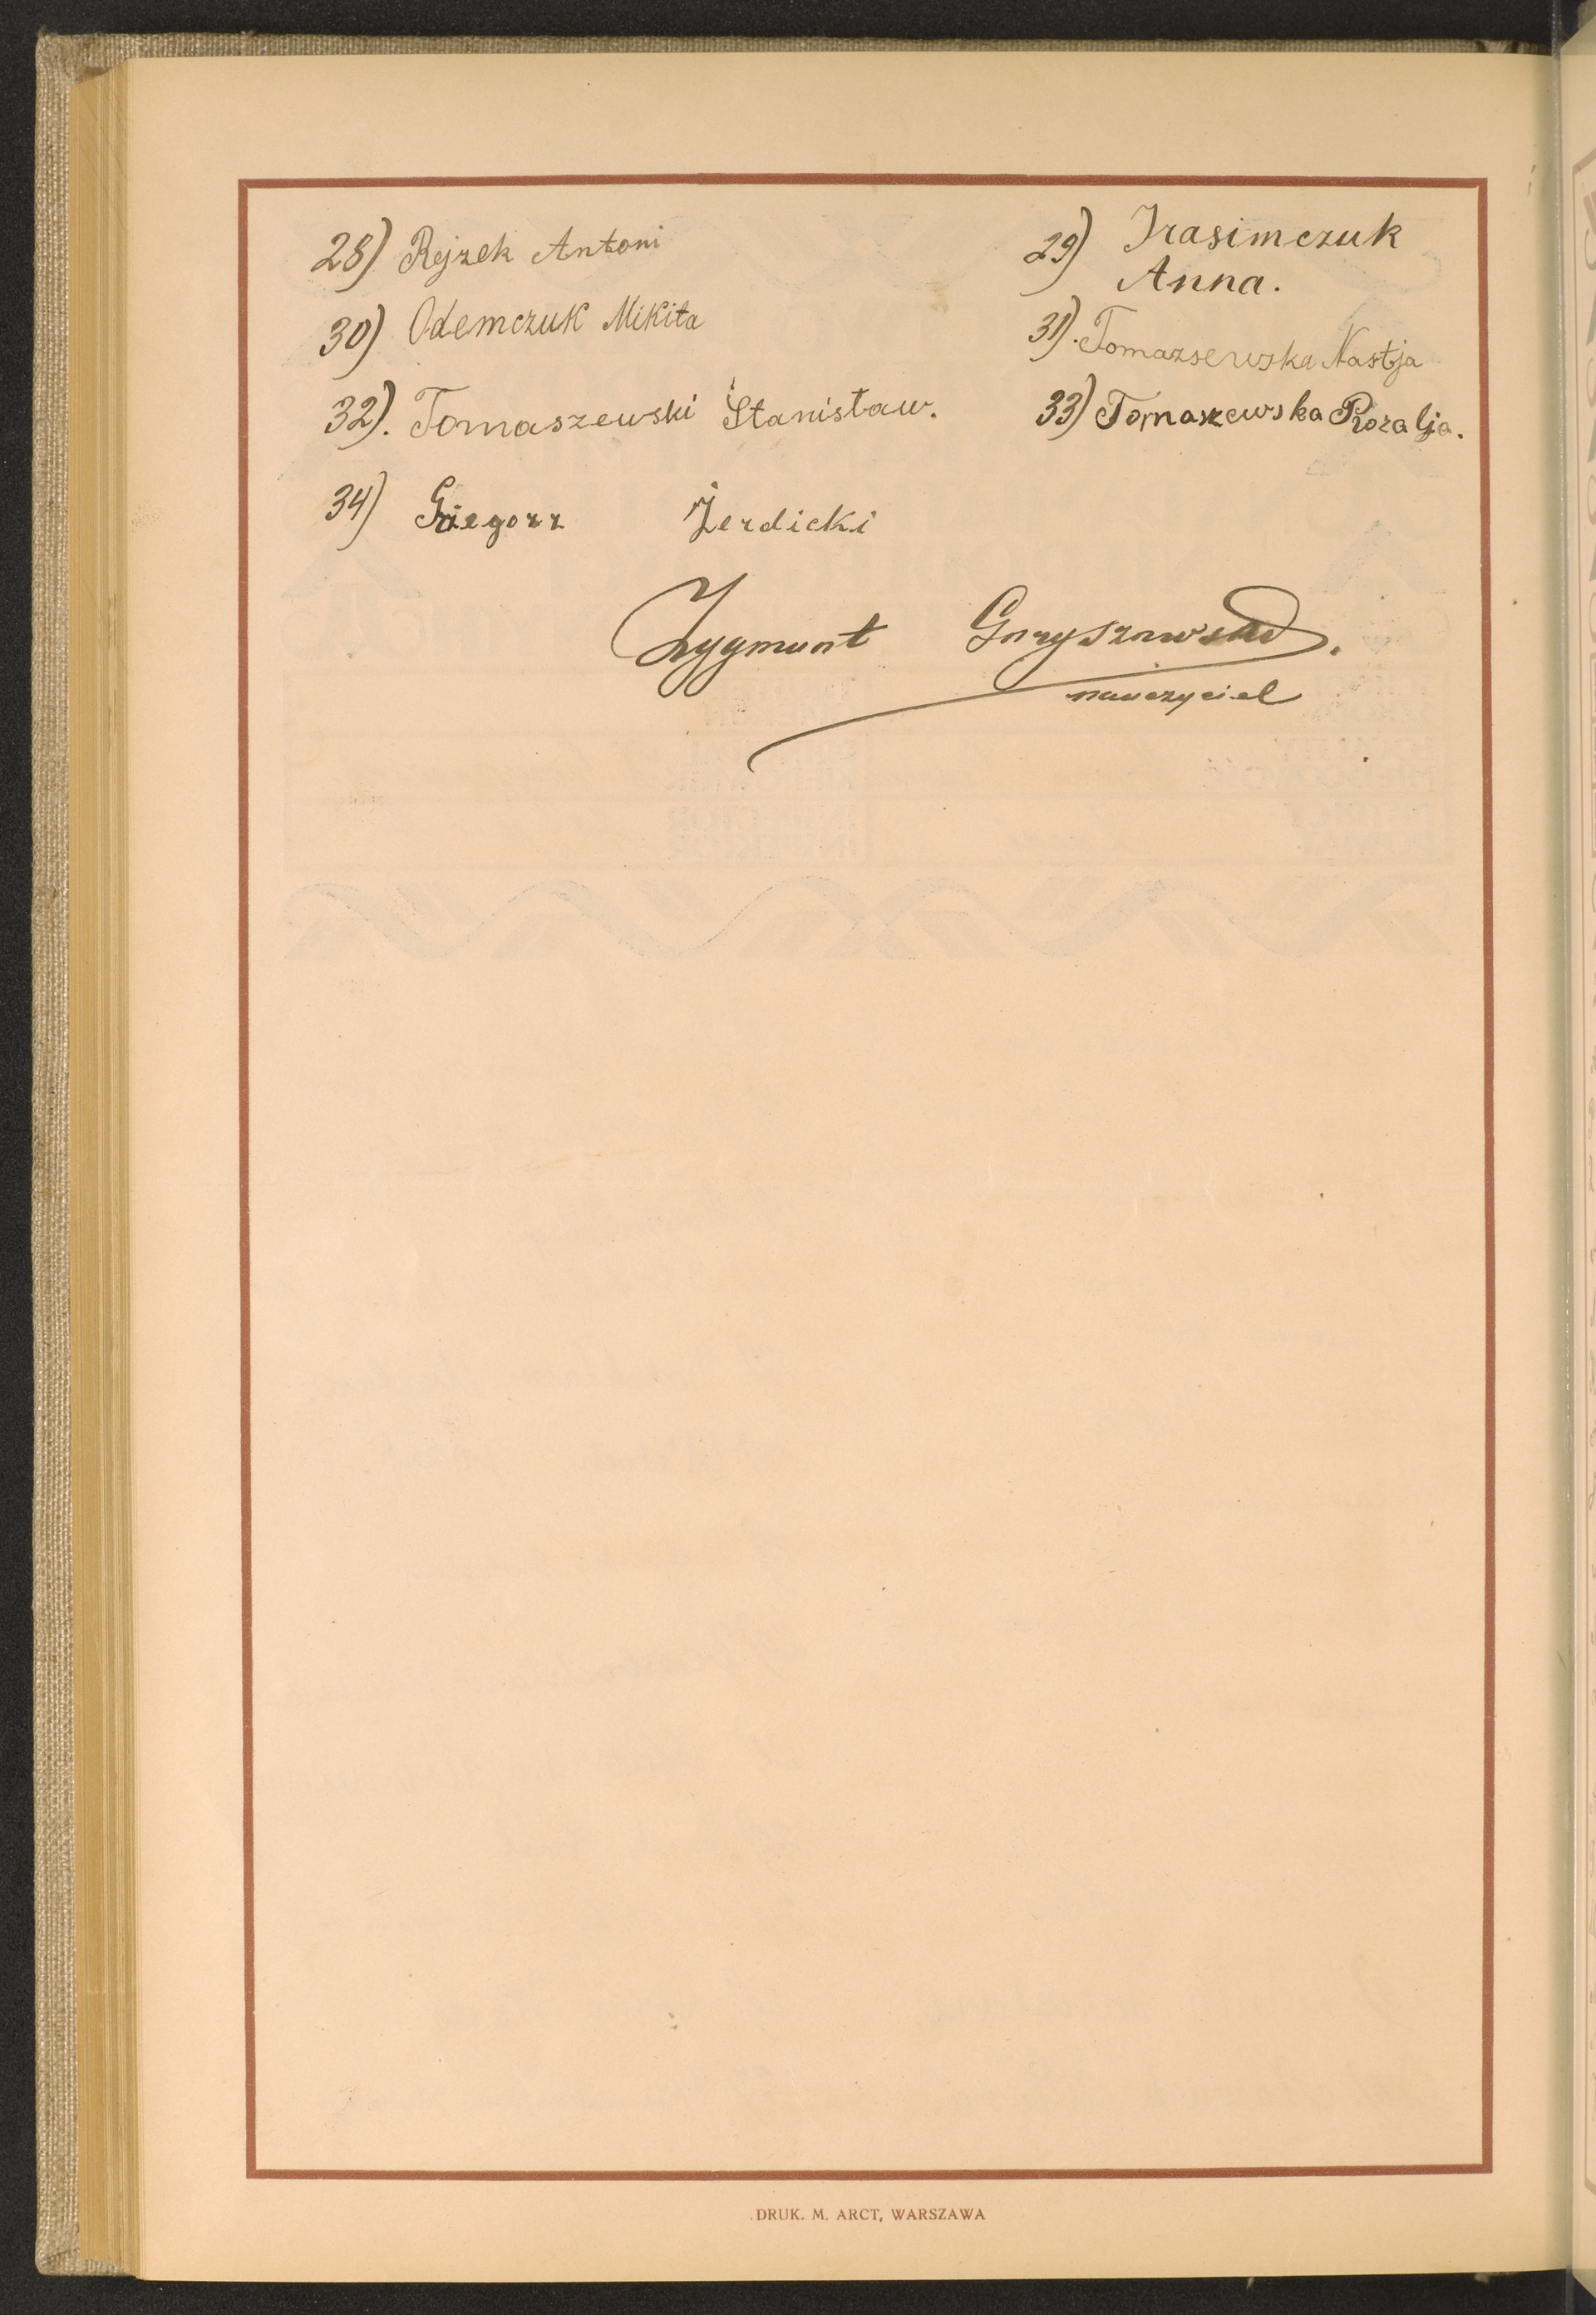 28) Rejzek Antoni
29) Irasimczuk
Anna.
30) Odemczuk Mikita
31). Tomazsewska Nastja
32). Tomaszewski Stanisław.
33) Tomaszewska Rozalja.
34) Grzegorz Żerdicki
Zygmunt
nauczyciel
DRUK. M. ARCT, WARSZAWA